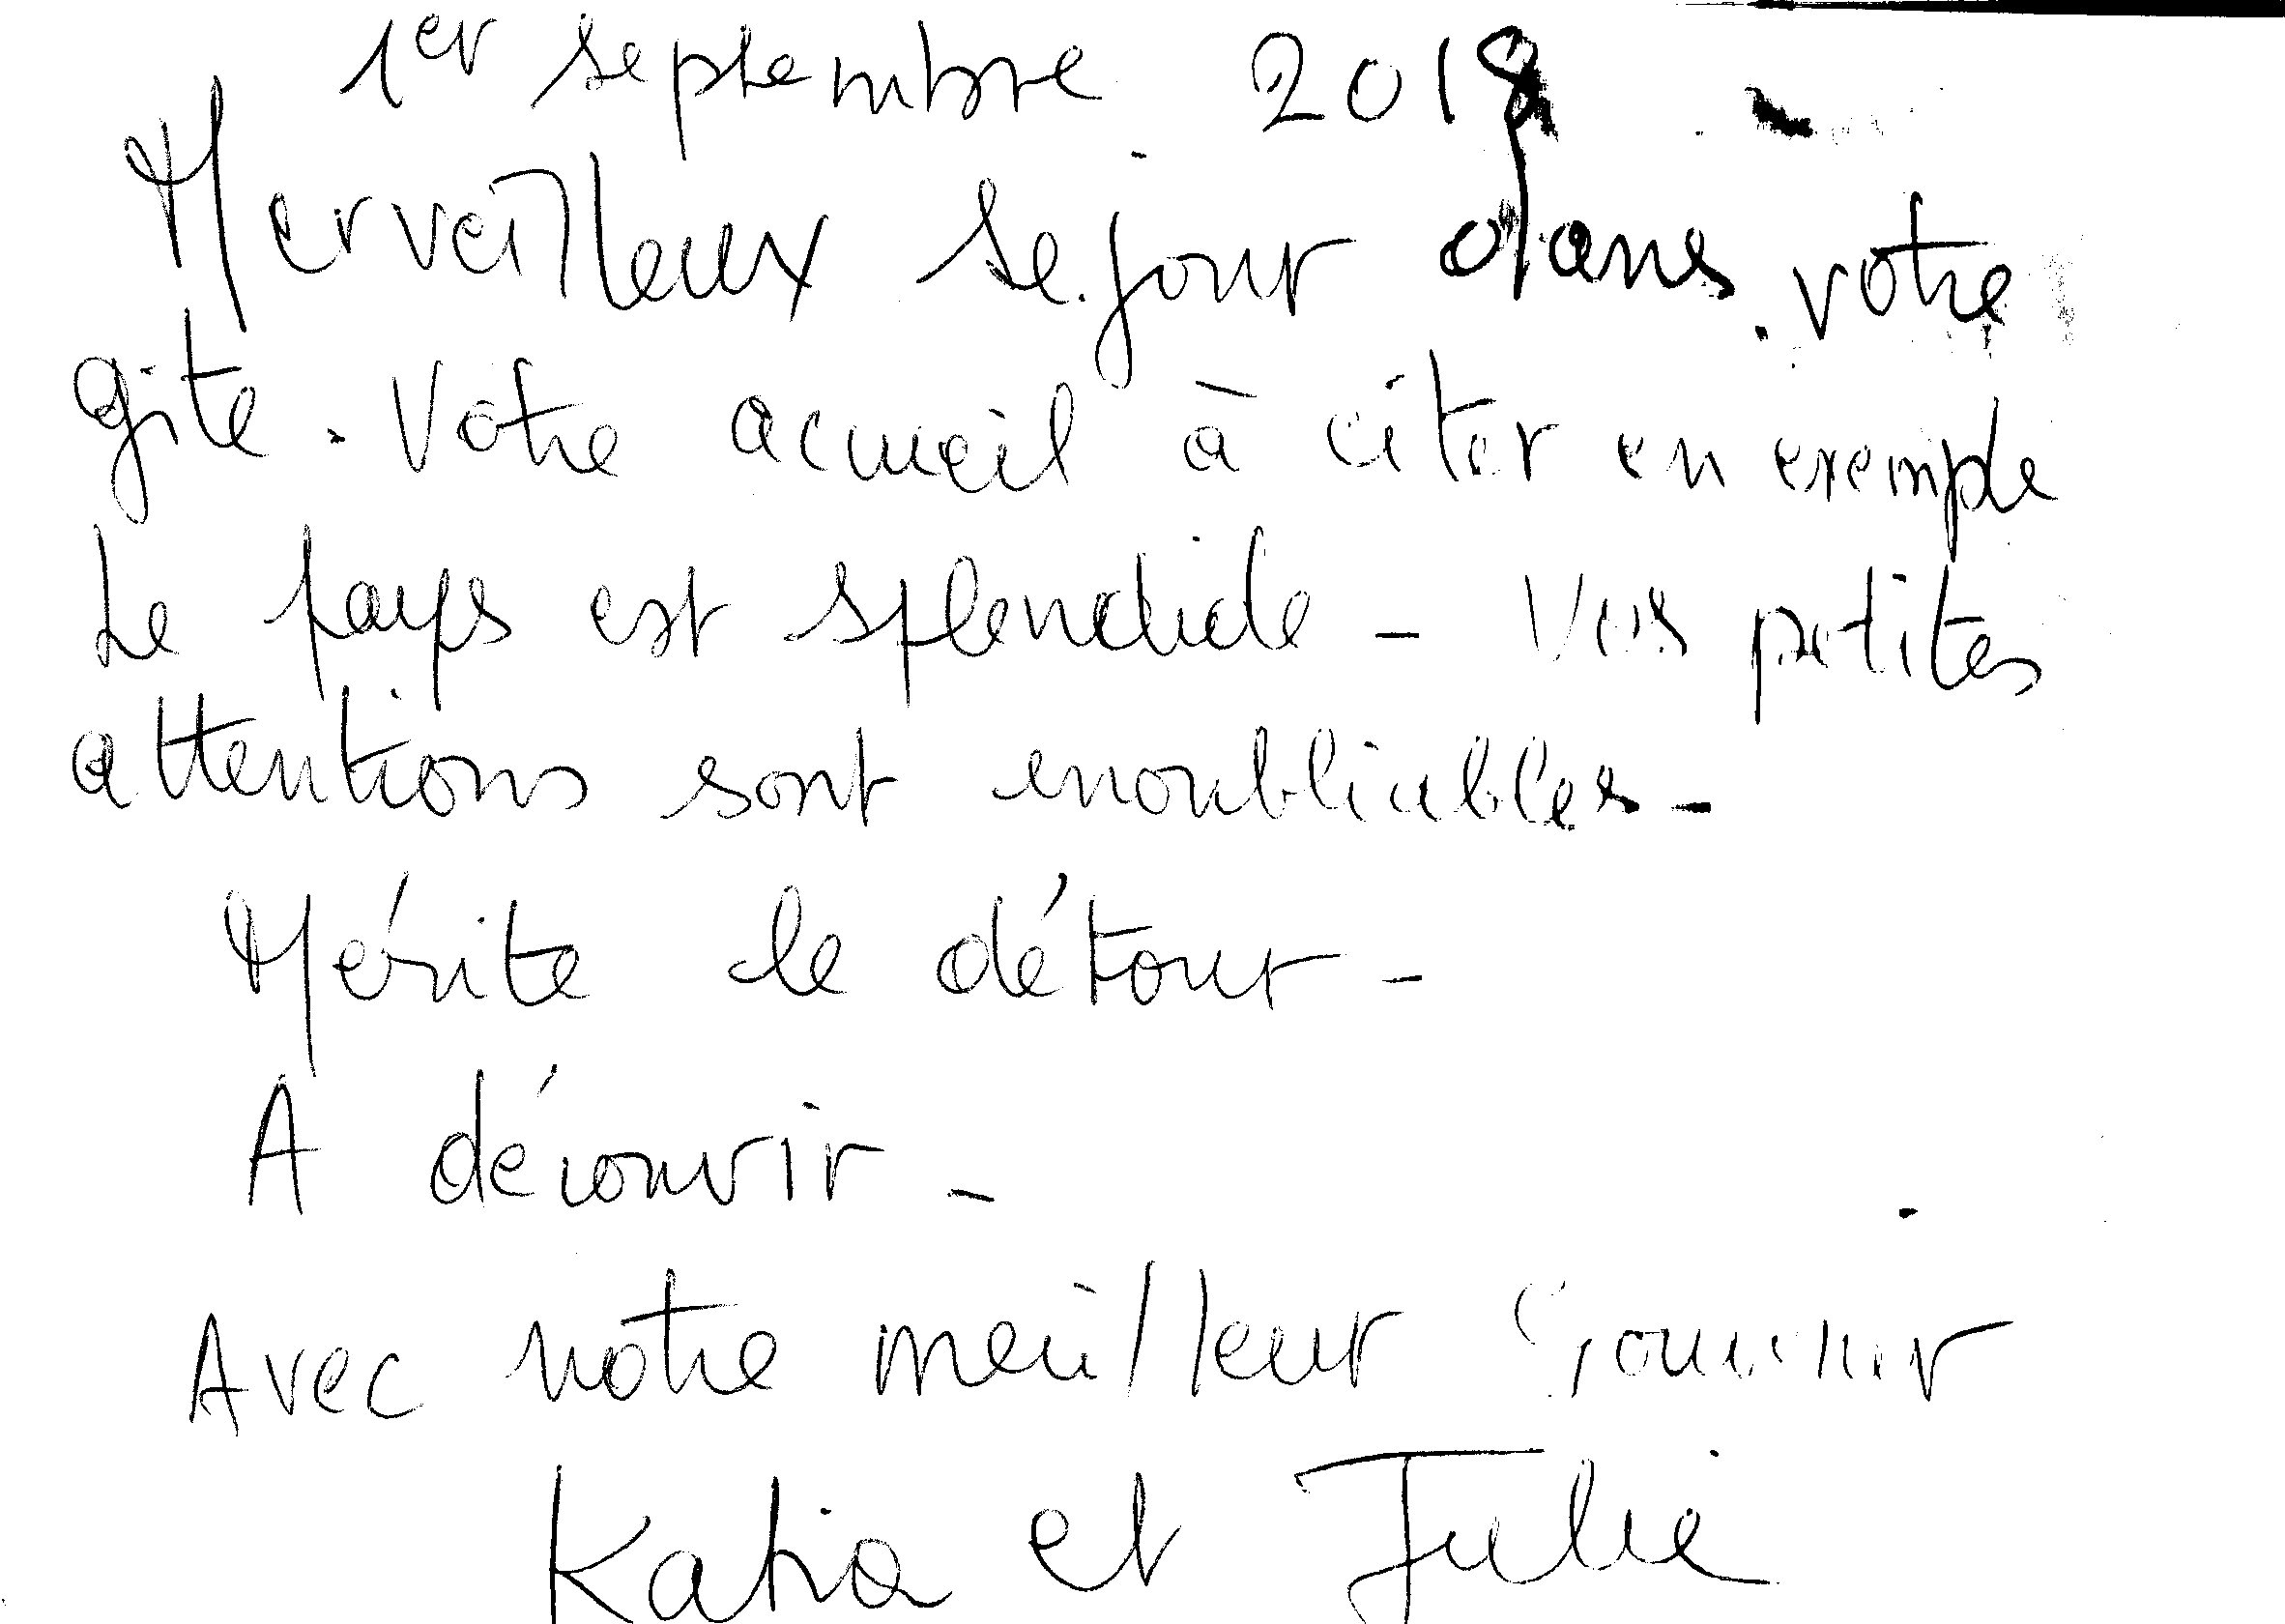 1er septembre 2018 -
Merveilleux sejour dans votre
gite. Votre accueil à citer en exemple
Le pays est splendide - Vos petites
attentions sont inoubliables -
Mérite le détour -
A découvrir -
Avec notre meilleur souvenir
Katia et Julie